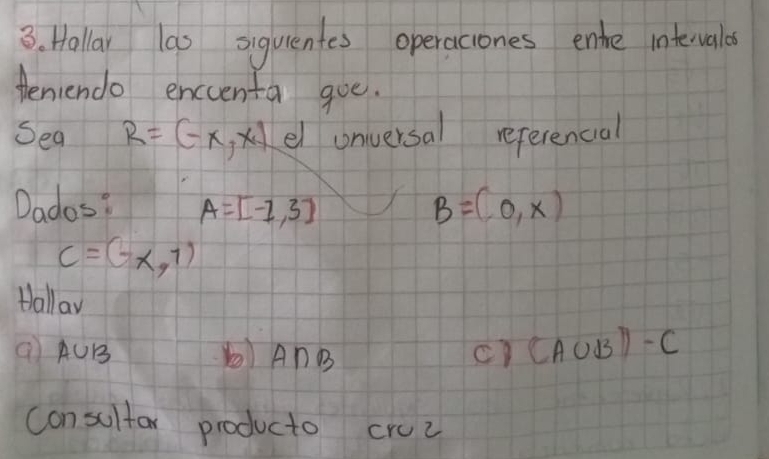 3. Hallar las siguientes operaciones entre intervalos
teniendo encuenta que.
Sea R=(-x,x) el universal referencial
Dados: A=[-1,3] B=(0,x)
C=(-x,1)
Hallar
a) AUB b) A∩B c) (AUB)-C
Consultar producto cruz